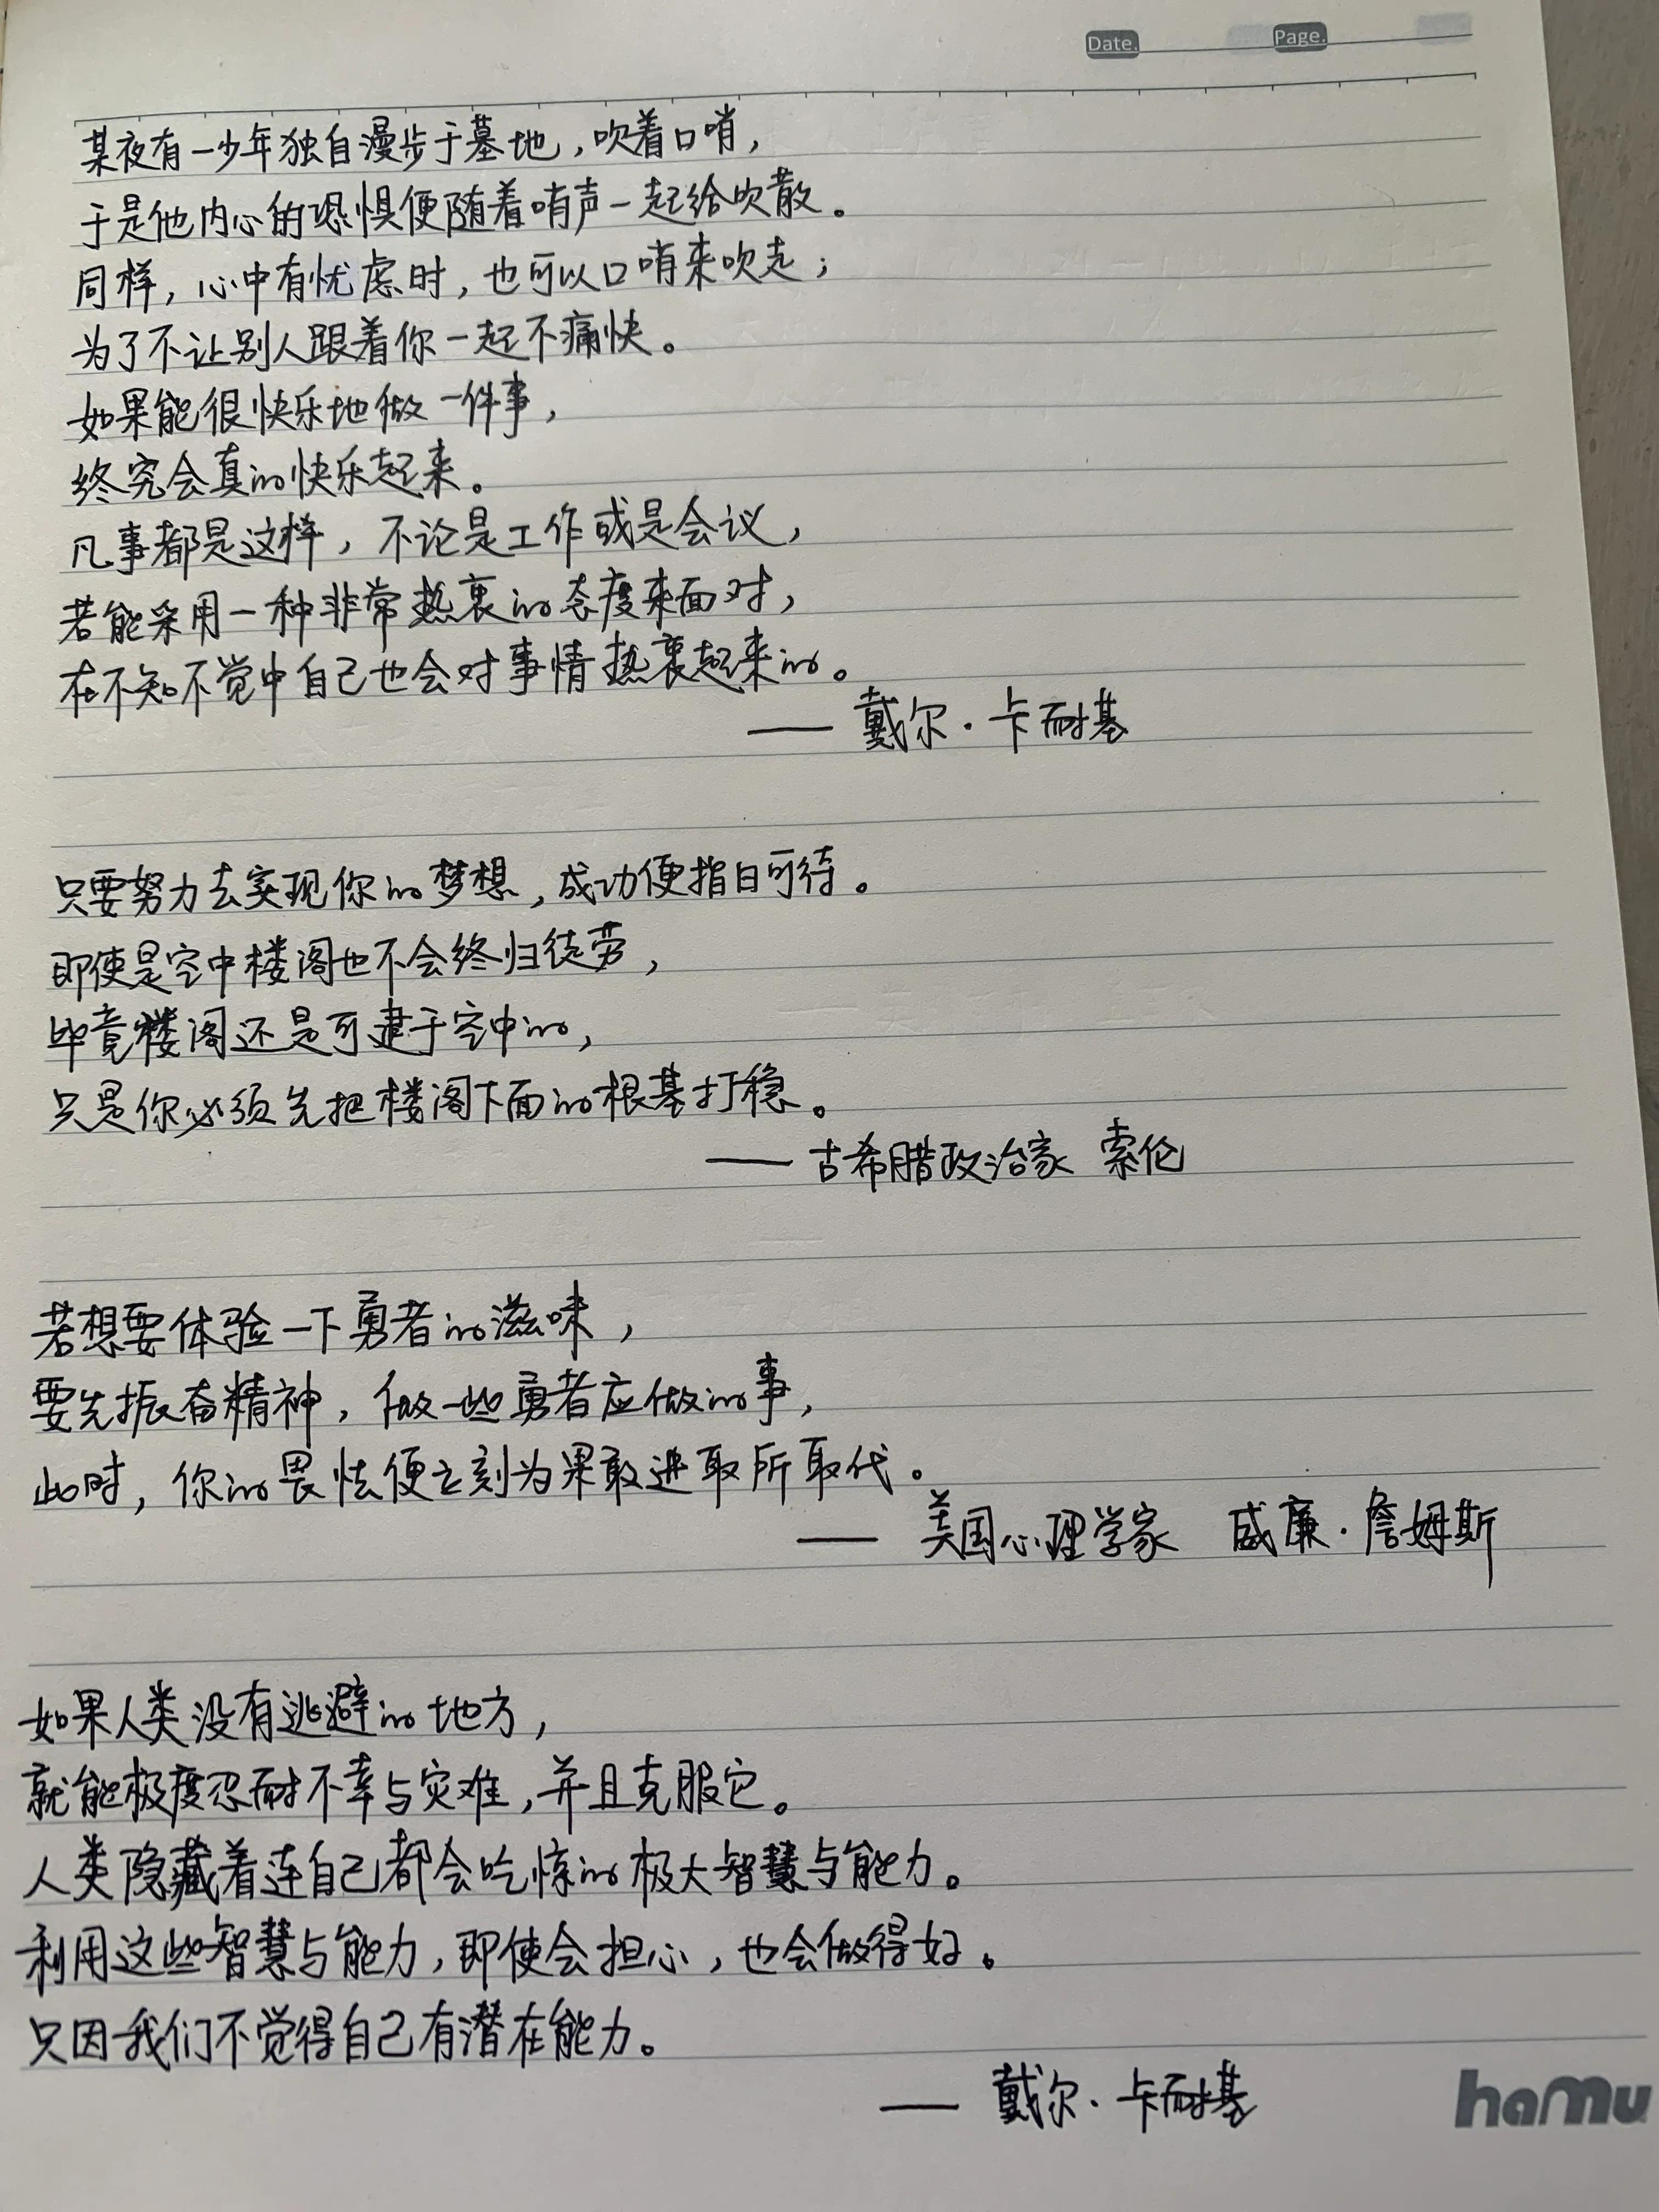 Date. Page.
某夜有一少年独自漫步于墓地,吹着口哨,
于是他内心的恐惧便随着哨声一起给吹散。
同样,心中有忧虑时,也可以口哨来吹走;
为了不让别人跟着你一起不痛快。
如果能很快乐地做一件事,
终究会真的快乐起来。
凡事都是这样,不论是工作或是会议,
若能采用一种非常热衷的态度来面对,
在不知不觉中自己也会对事情热衷起来的。
—— 戴尔·卡耐基
只要努力去实现你的梦想,成功便指日可待。
即使是空中楼阁也不会终归徒劳,
毕竟楼阁还是可建于空中的,
只是你必须先把楼阁下面的根基打稳。
—— 古希腊政治家 索伦
若想要体验一下勇者的滋味,
要先振奋精神,做一些勇者应做的事,
此时,你的畏怯便立刻为果敢进取所取代。
—— 美国心理学家 威廉·詹姆斯
如果人类没有逃避的地方,
就能极度忍耐不幸与灾难,并且克服它。
人类隐藏着连自己都会吃惊的极大智慧与能力。
利用这些智慧与能力,即使会担心,也会做得好。
只因我们不觉得自己有潜在能力。
—— 戴尔·卡耐基
hamu